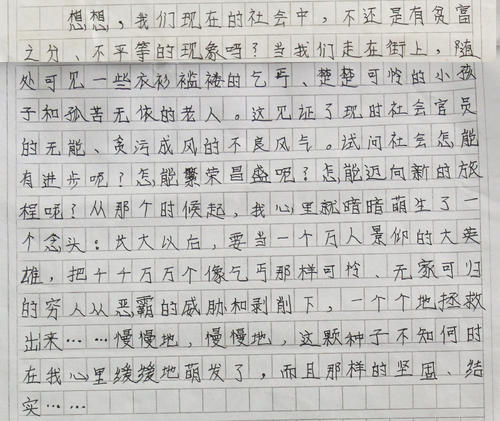 想想，我们现在的社会中，不还是有贫富
之分、不平等的现象吗？当我们走在街上，随
处可见一些衣衫褴褛的乞丐、楚楚可怜的小孩
子和孤苦无依的老人。这见证了现时社会官员
的无能、贪污成风的不良风气。试问社会怎能
有进步呢？怎能繁荣昌盛呢？怎能迈向新的旅
程呢？从那个时候起，我心里就暗暗萌生了一
个念头：长大以后，要当一个万人景仰的大英
雄，把千千万万个像乞丐那样可怜、无家可归
的穷人从恶霸的威胁和剥削下，一个个地拯救
出来……慢慢地，慢慢地，这颗种子不知何时
在我心里缓缓地萌发了，而且那样的坚固、结
实……